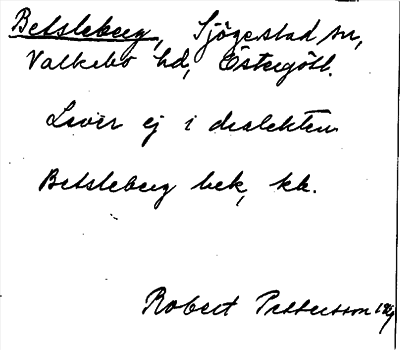 Betsleberg, Sjögestad sn,
Valkebo hd, Östergötl.
Lever ej i dialekten
Betsleberg bek, kk.
Robert Pettersson